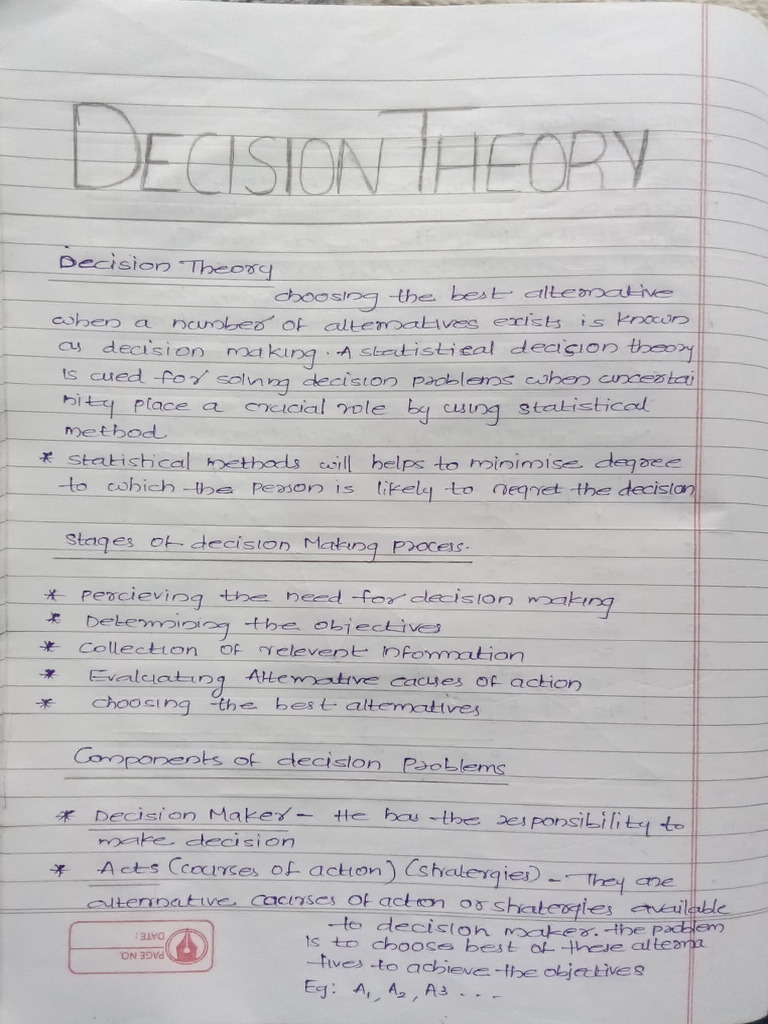 DECISION THEORY
Decision Theory
choosing the best alternative
when a number of alternatives exists is known
as decision making. A statistical decision theory
is used for solving decision problems when uncertai
nity place a crucial role by using statistical
method
* statistical methods will helps to minimise degree
to which the person is likely to regret the decision
Stages of decision Making process.
* percieving the need for decision making
* Determining the objectives
* collection of relevent information
* Evaluating Alternative causes of action
* choosing the best alternatives
Components of decision Problems
* Decision Maker - He has the responsibility to
make decision
* Acts (courses of action) (stratergies) - They are
alternative courses of action or stratergies available
to decision maker. the problem
is to choose best of these alterna
tives to achieve the objectives
Eg: A1, A2, A3 ...
PAGE NO.
DATE: